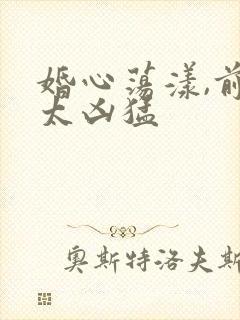 婚心荡漾,前
太凶猛
奥斯特洛夫斯